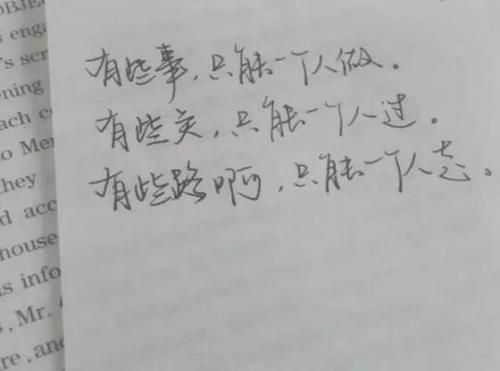 OBJE
s enga
's scr
ening
ach c
o Mer
they
d acc
house
as info
, Mr.
re, and
有些事，只能一个人做。
有些关，只能一个人过。
有些路啊，只能一个人走。